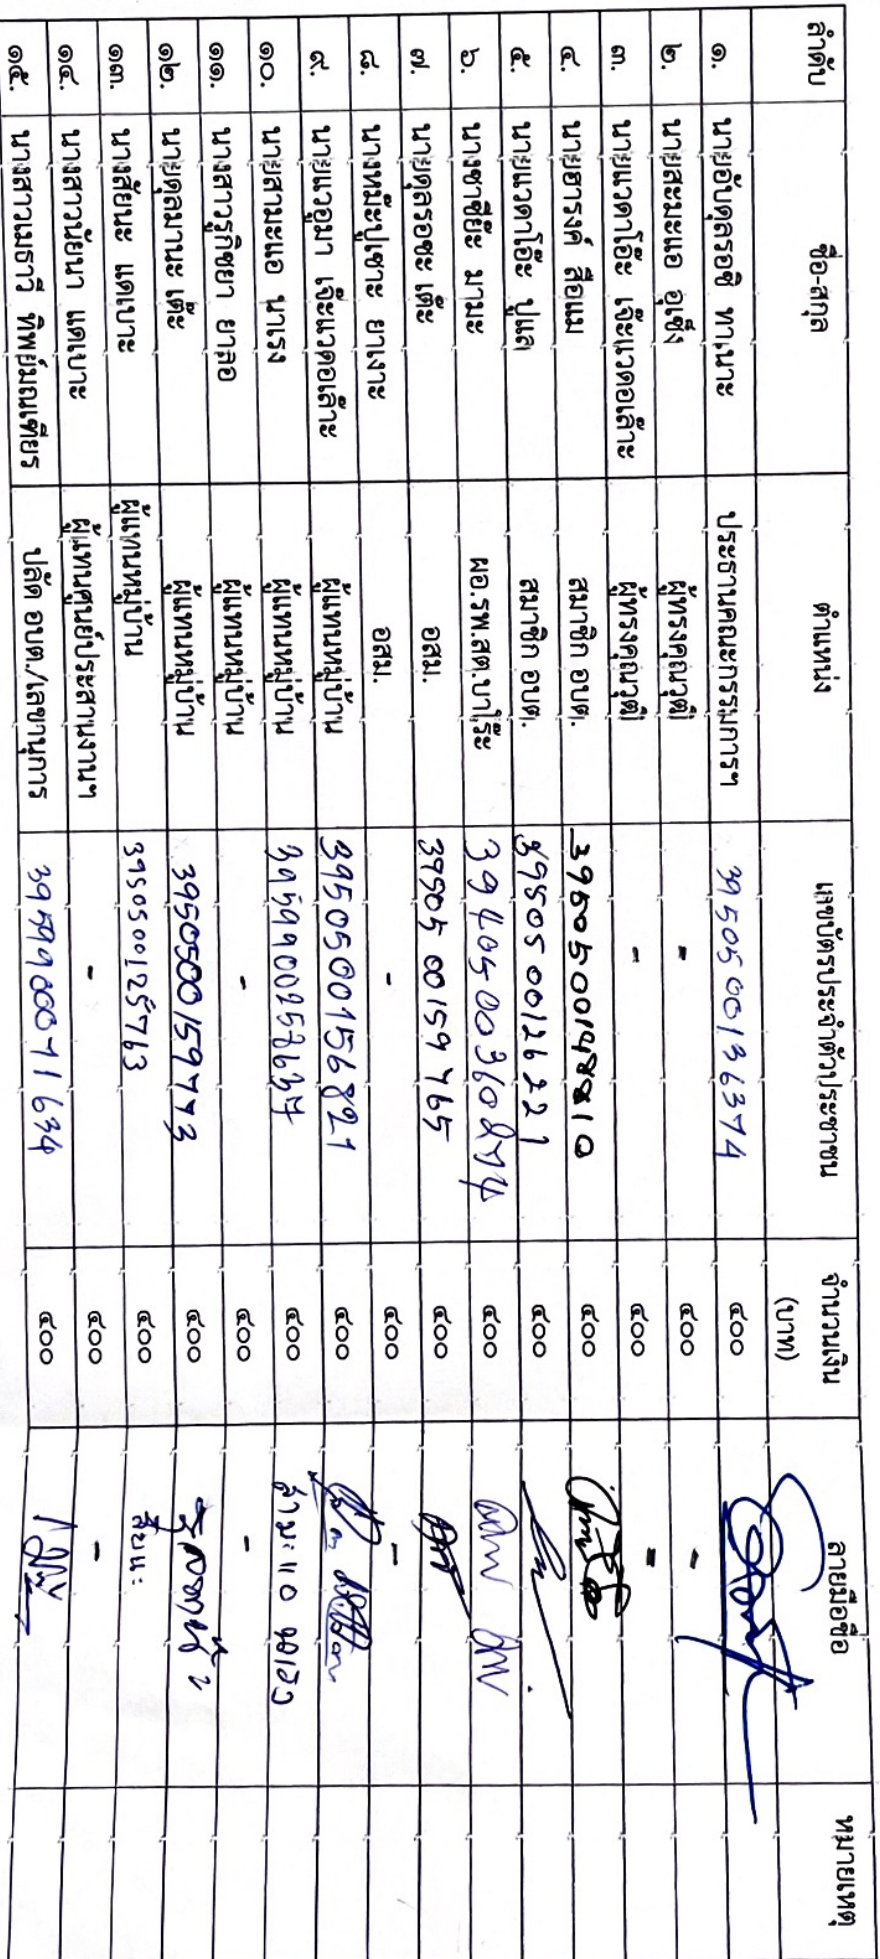 ลำดับ ชื่อ-สกุล ตำแหน่ง เลขบัตรประจำตัวประชาชน จำนวนเงิน (บาท) ลายมือชื่อ หมายเหตุ
๑. นายอับดุลรอซิ ทาเนาะ ประธานคณะกรรมการฯ 3950500136374 ๔๐๐
๒. นายสะมะแอ อูเซ็ง ผู้ทรงคุณวุฒิ - ๔๐๐ -
๓. นายแวดาโอ๊ะ เจ๊ะแวดอเล๊าะ ผู้ทรงคุณวุฒิ - ๔๐๐ -
๔. นายฮารงค์ สือแม สมาชิก อบต. ๔๐๐
๕. นายแวดาโอ๊ะ ปูแต สมาชิก อบต. 3950500126221 ๔๐๐
๖. นางซาซีย๊ะ มามะ ผอ.รพ.สต.บาโร๊ะ ๔๐๐
๗. นายดุลรอซะ เต๊ะ อสม. 3950500159765 ๔๐๐
๘. นางหม๊ะบูเซาะ ยาเงาะ อสม. - ๔๐๐ -
๙. นายแวอูมา เจ๊ะแวดอเล๊าะ ผู้แทนหมู่บ้าน 3950500156821 ๔๐๐
๑๐. นายสามะแอ นาเรง ผู้แทนหมู่บ้าน ๔๐๐
๑๑. นางสาวรูกิซยา ยาลอ ผู้แทนหมู่บ้าน - ๔๐๐ -
๑๒. นายดุลมานะ เต๊ะ ผู้แทนหมู่บ้าน 3950500159773 ๔๐๐
๑๓. นางสัยนะ แตเบาะ ผู้แทนหมู่บ้าน 3950500125763 ๔๐๐
๑๔. นางสาวนัยนา แตเบาะ ผู้แทนศูนย์ประสานงานฯ - ๔๐๐ -
๑๕. นางสาวเมธาวี ทิพย์มณเฑียร ปลัด อบต./เลขานุการ 3959900071634 ๔๐๐